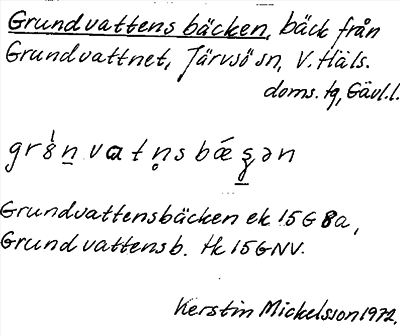 Grundvattensbäcken, bäck från
Grundvattnet, Järvsö sn, V. Häls.
doms. tg, Gävl.l.
Grundvattensbäcken ek 15G8a,
Grundvattensb. tk 15GNV.
Kerstin Mickelsson 1972.